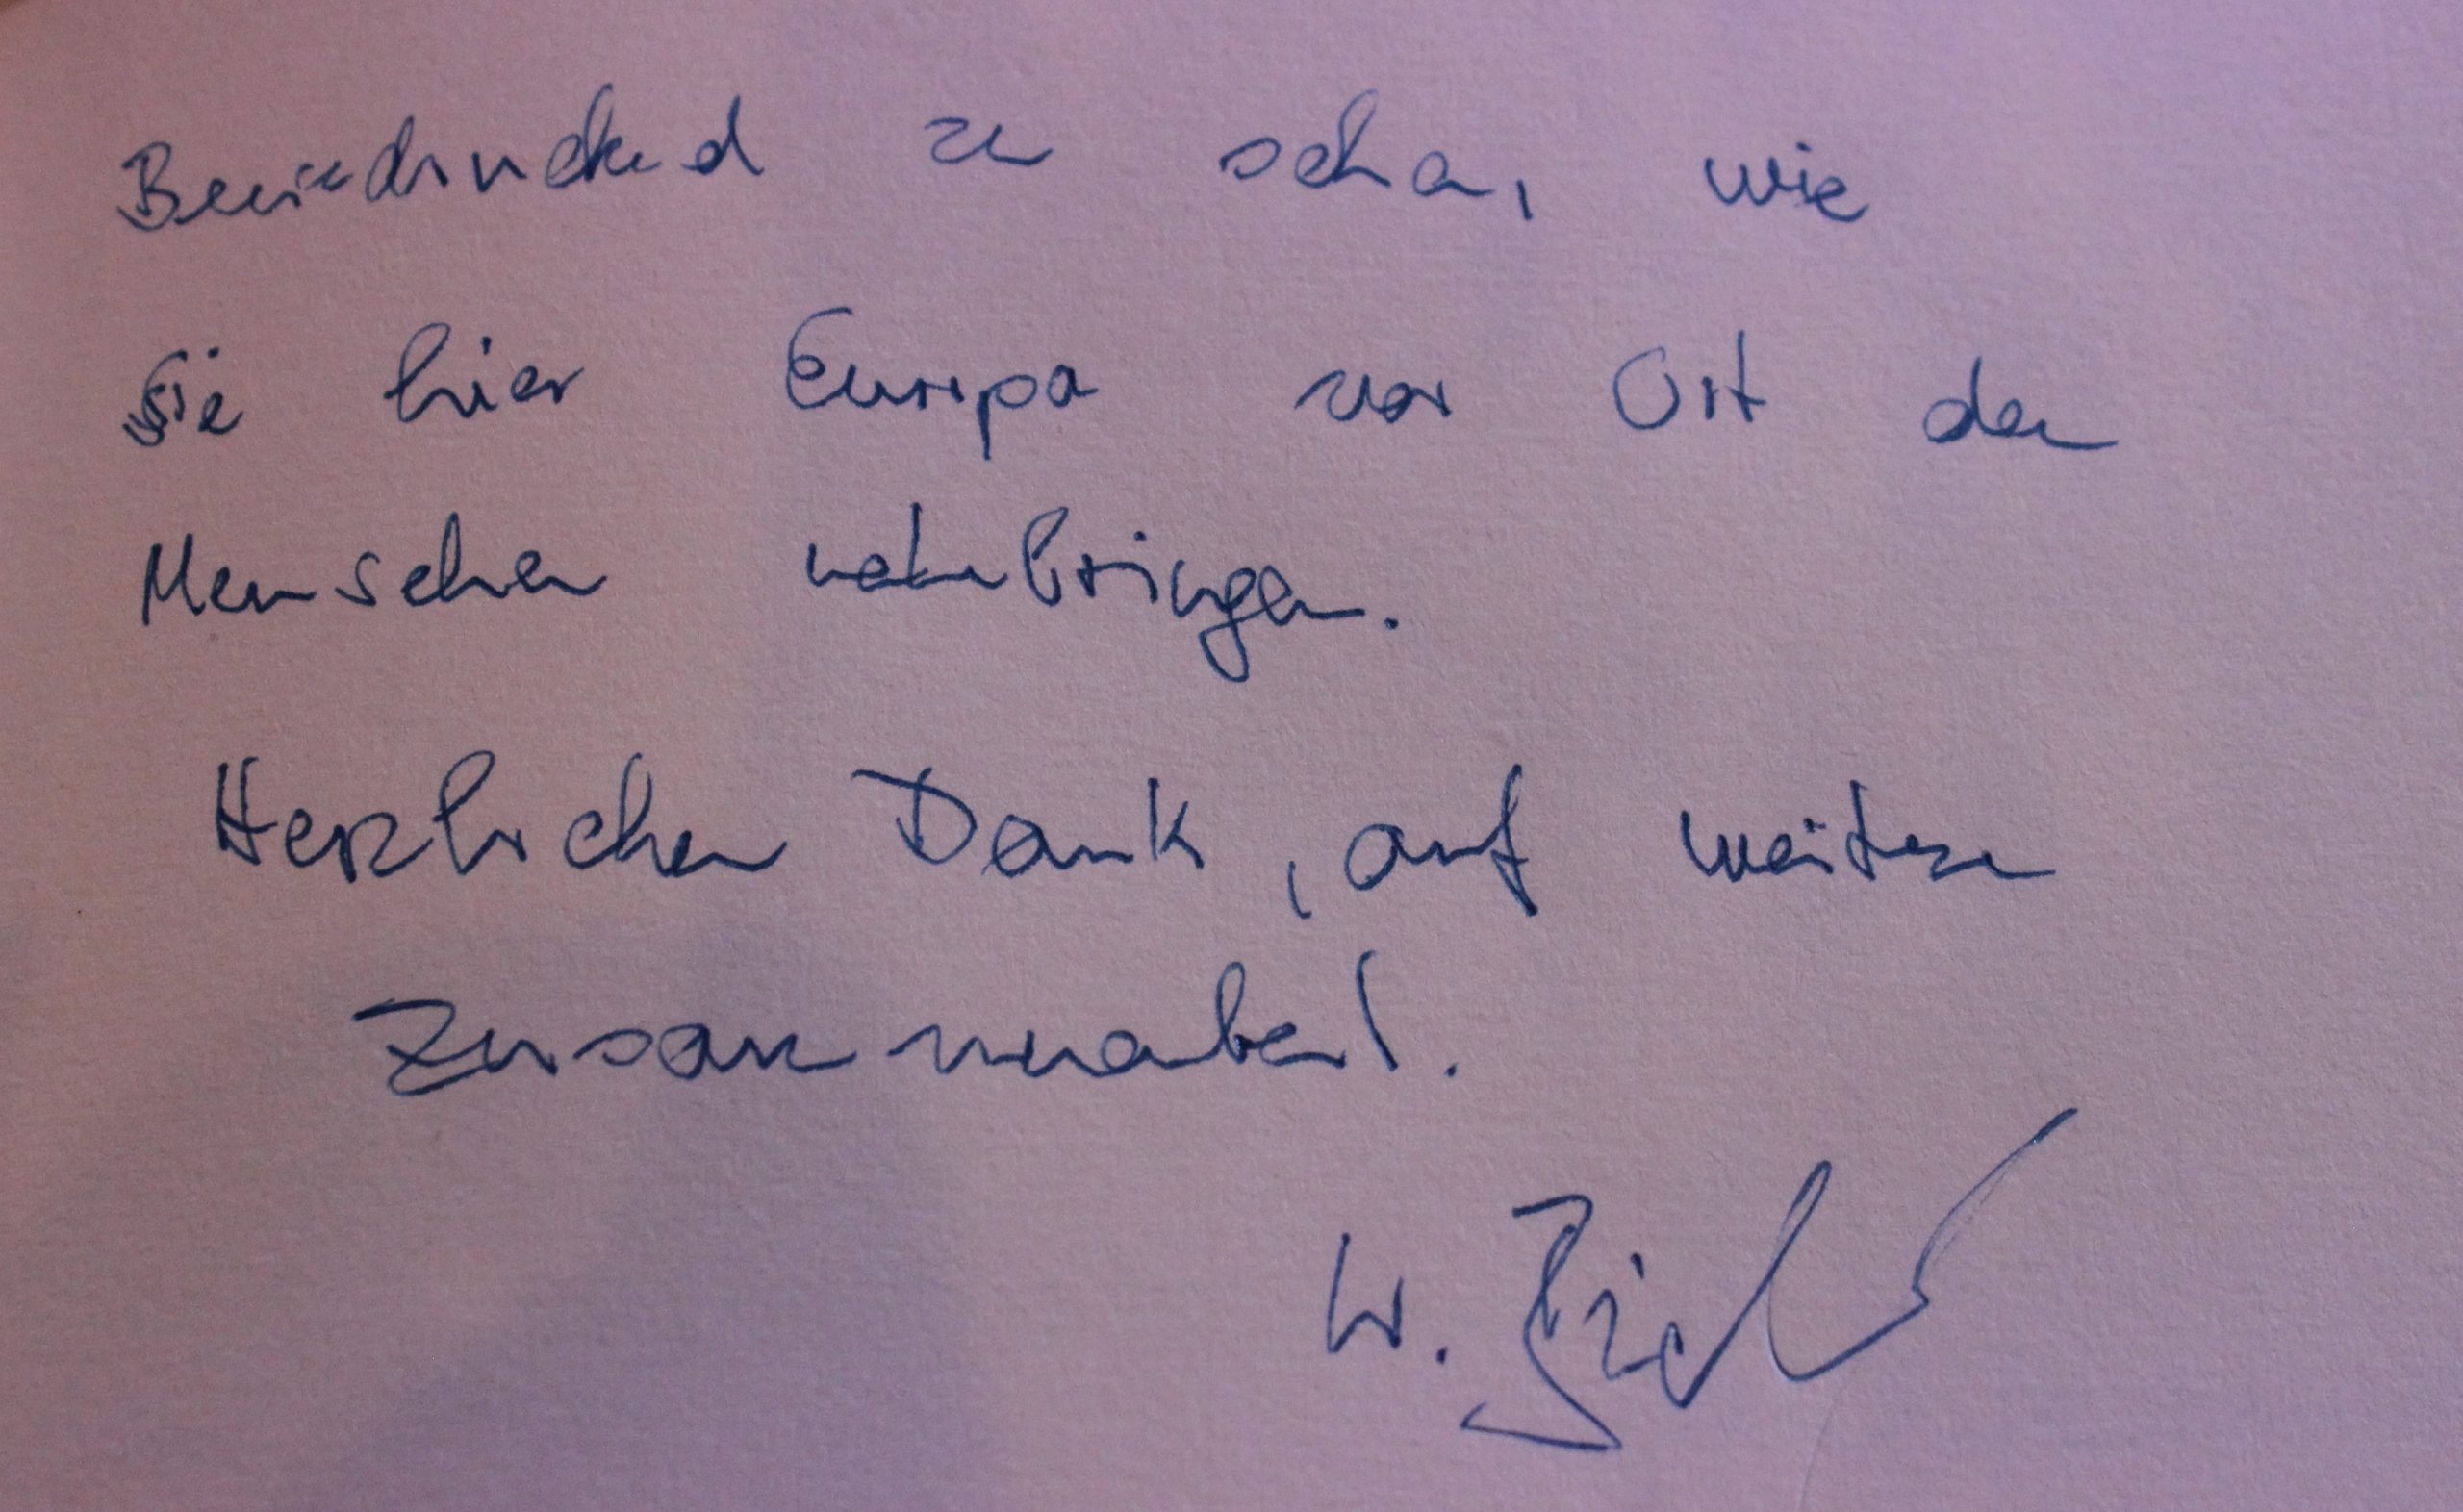 Beeindruckend zu sehen, wie
Sie hier Europa vor Ort den
Menschen näherbringen.
Herzlichen Dank, auf weitere
Zusammenarbeit.
W.